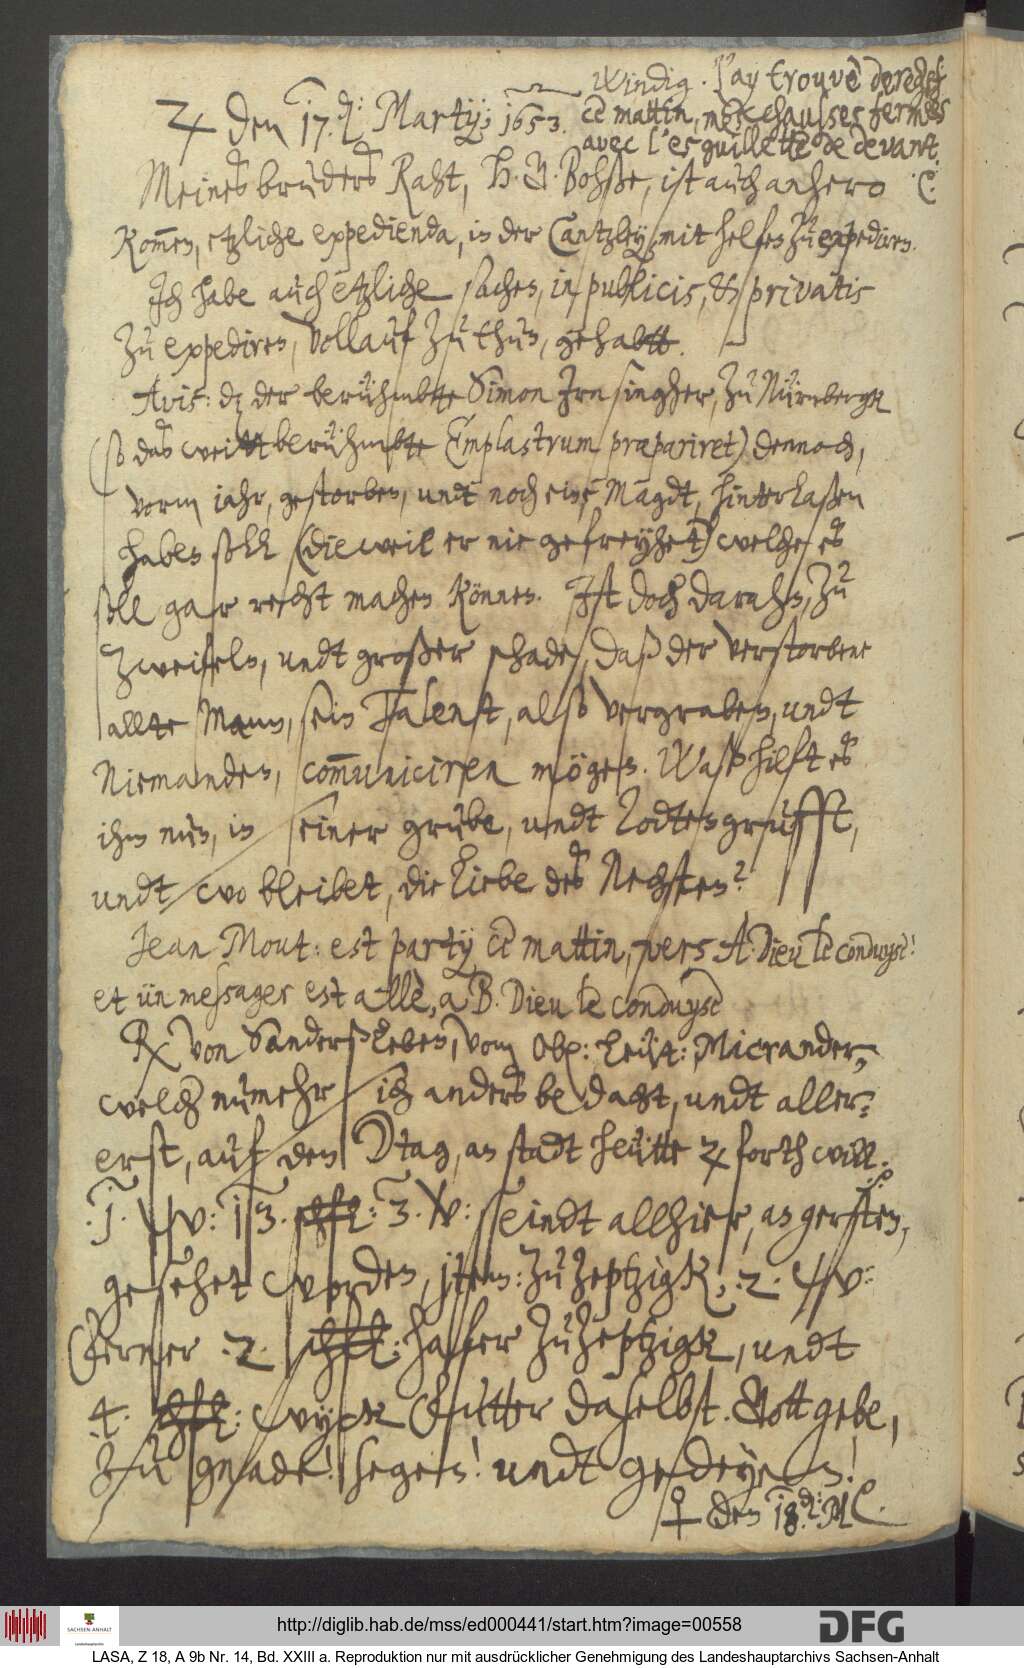 Windig. J'ay trouvè derechef
ce mattin, mes chausses fermèes
avec l'esguillette de devant.
♃ den 17.d: Martij; 1653.
Meines bruders Raht, H. J. Bohße, ist auch anhero
kom̅en, etzliche expedienda, in der Cantzley, mit helfen zu expediren.
Jch habe auch etzliche sachen, in publicis, & privatis
zu expediren, vollauf zu thun, gehabtt.
Avis: dz der berühmbtte Simon Jrnsingher, zu Nürnbergk
(so das weittberühmbte Emplastrum præpariret) dennoch,
vorm jahr, gestorben, undt noch eine Magdt, hinterlaßen
haben soll (dieweil er nie gefreyhet) welche es
soll gar recht machen können. Jst doch darahn, zu
zweifeln, undt großer schade, daß der verstorbene
allte Mann, sein Talenft, also vergraben, undt
Niemanden, com̅uniciren mögen. Waß hilft es
ihm nun, in seiner grube, undt Todtengrufft,
undt wo bleibet, die Liebe des Nechsten?
Jean Mout: est party ce mattin, vers A. Dieu le conduyse!
et ün messager est allè, a B. Dieu le conduyse
Rx von Sanderßleben, vom Ob: Leüt: Micrander,
welch numehr sich anders bedacht, undt aller-
erst, auf den Dtag, an stadt heütte ♃ forth will.
.1. W: 13. schfl: 3. V: seindt allhier, an gersten,
gesehet worden, jtem: zu Zeptzigk, .2. W:
Ferner .2. schfl: haffer zu Zeptzigk, undt
.4. schfl: wyck Futter daselbst. Gott gebe,
zu gnade! segen! undt gedeyen!
♀ den 18.d: M
http://diglib.hab.de/mss/ed000441/start.htm?image=00558
DFG
SACHSEN-ANHALT
Landeshauptarchiv
LASA, Z 18, A 9b Nr. 14, Bd. XXIII a. Reproduktion nur mit ausdrücklicher Genehmigung des Landeshauptarchivs Sachsen-Anhalt